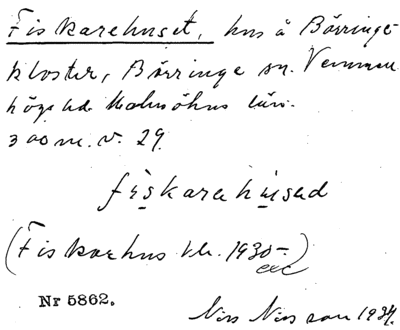 Fiskarehuset, hus å Börringe-
kloster, Börringe sn. Vemmen
högs hd. Malmöhus län.
300 m. v. 29.
fiskarehúsəd
(Fiskarhus kb. 1930–)
exc
Nr 5862.
Nils Nilsson 1934.